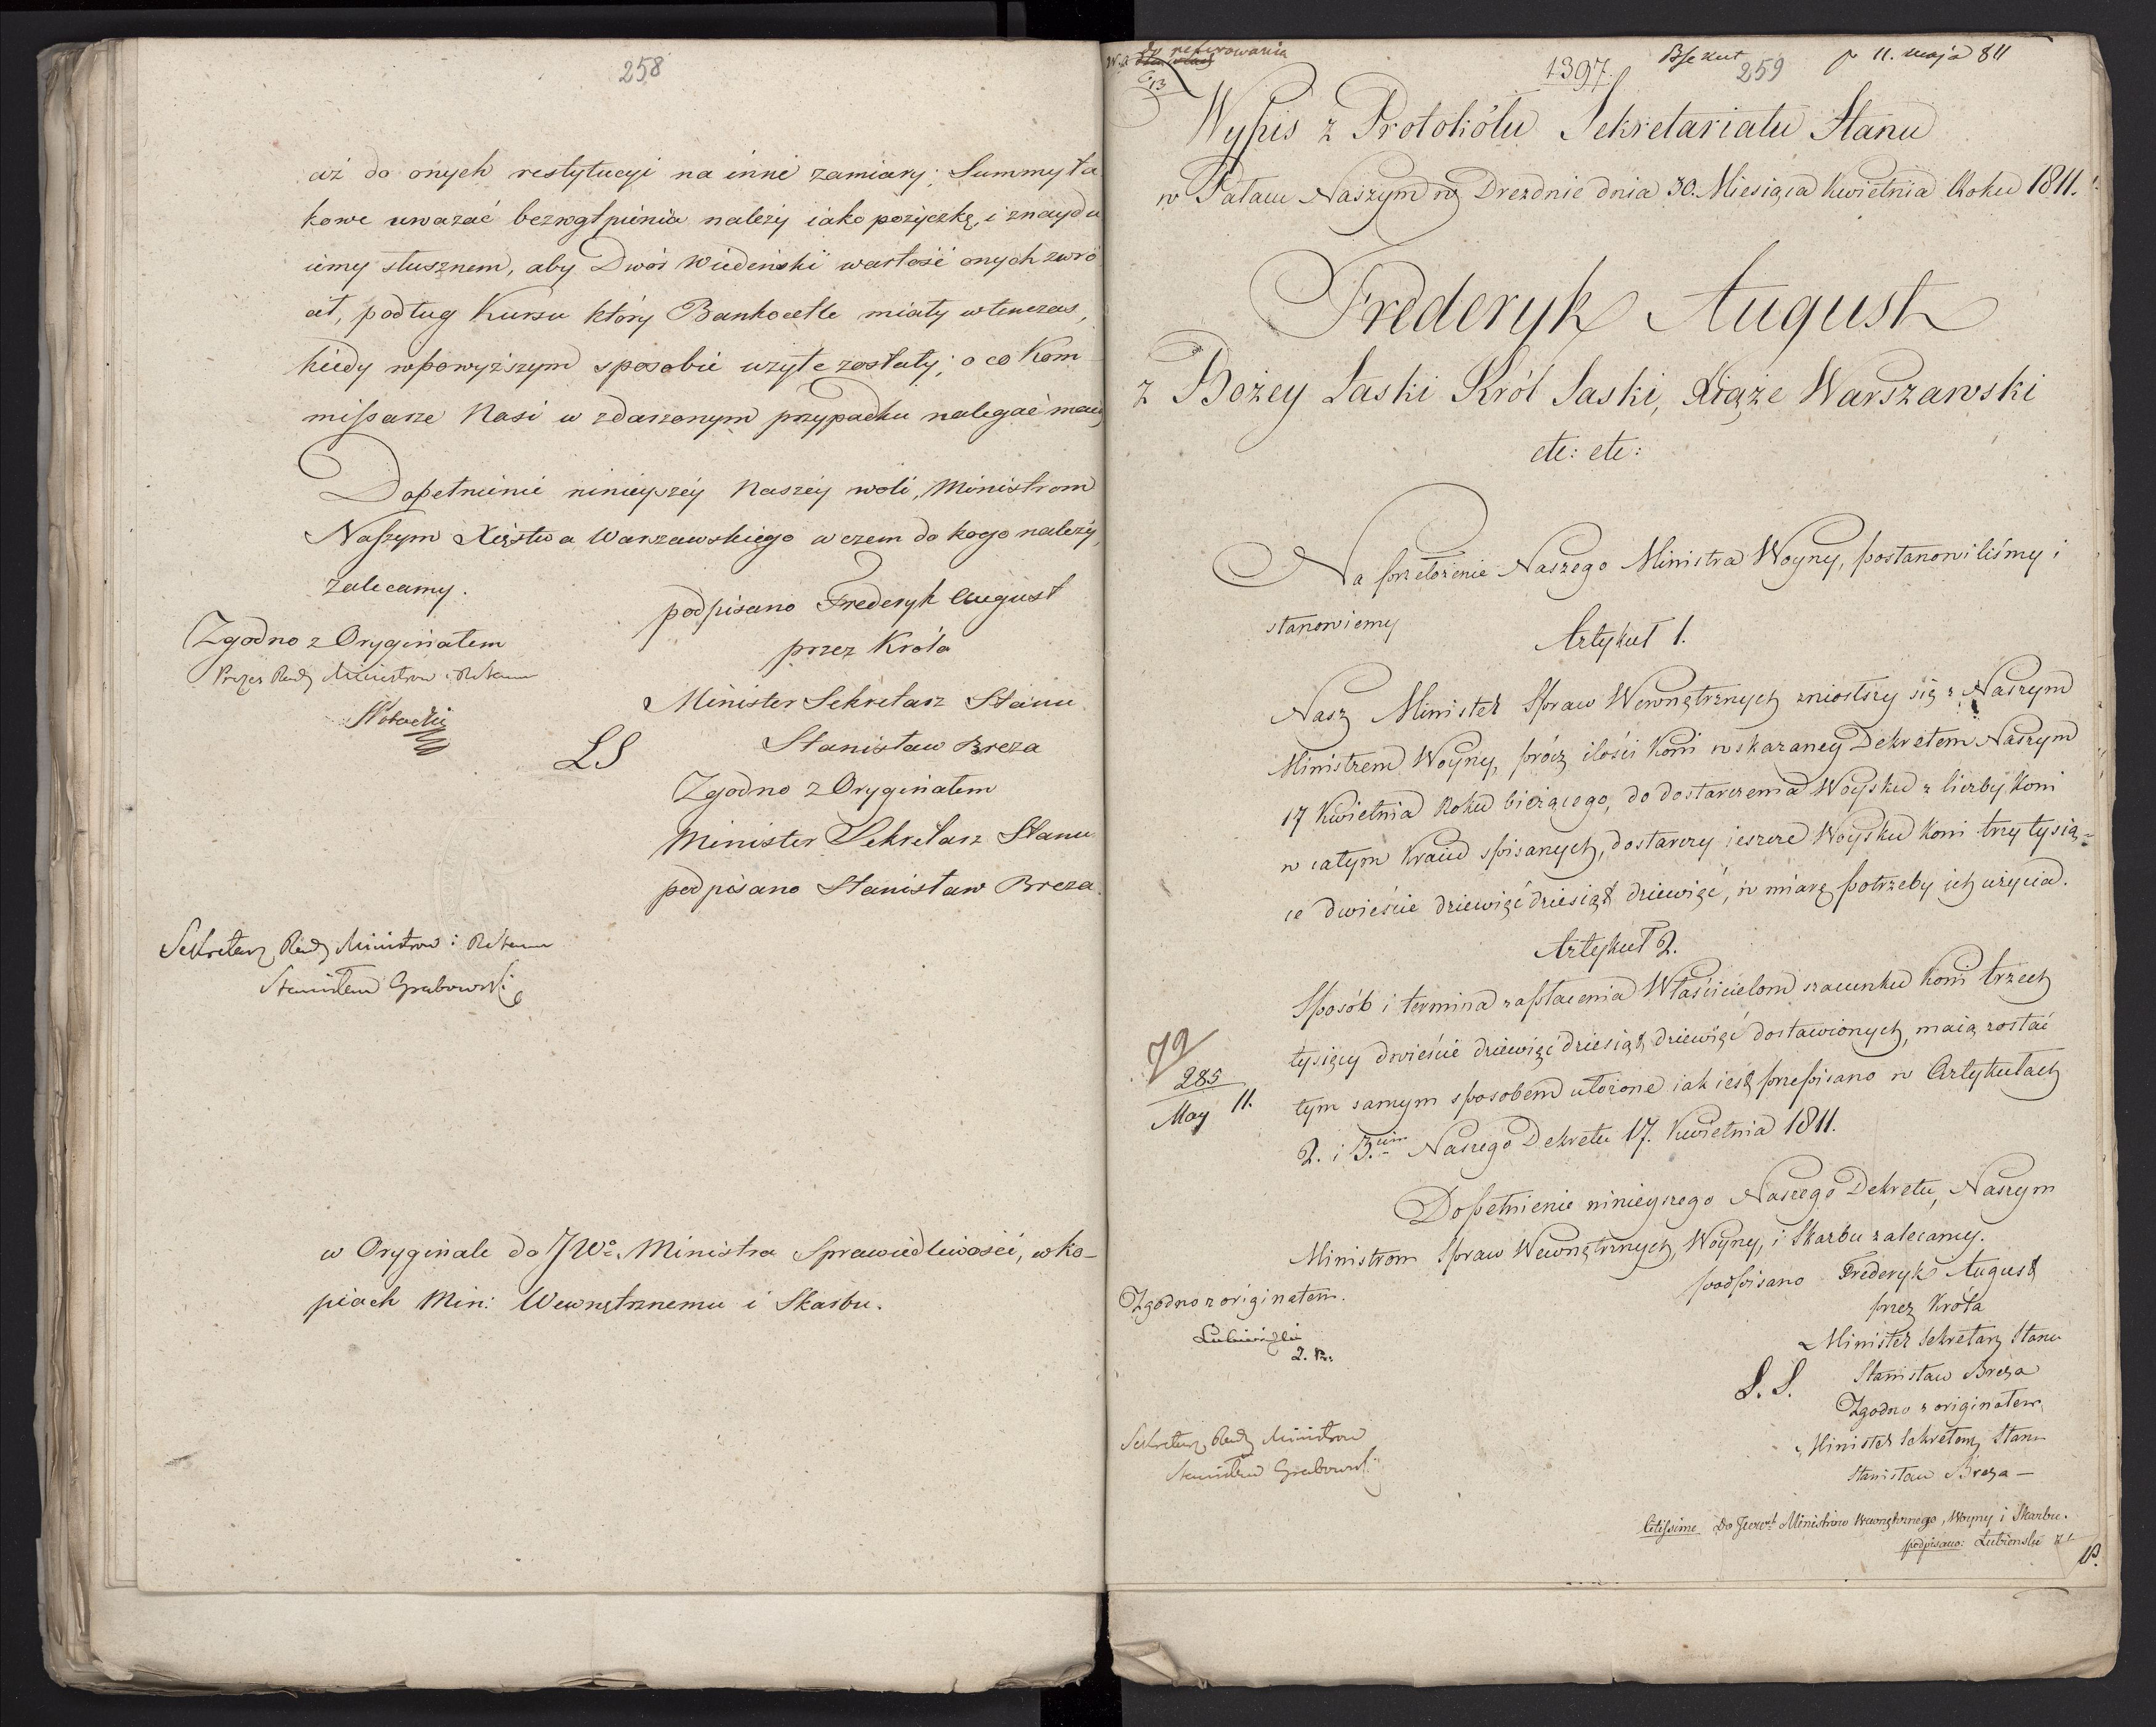 258
aż do onych restytucyi na inne zamiary; Summy ta
kowe uważać bezwątpienia należy iako pożyczkę, i znaydu
iemy słusznem, aby Dwór Wiedeński wartość onych zwró
cił, podług Kursu który Bankocetle miały wtenczas,
kiedy wpowyższym sposobie użyte zostały; o co Kom
missarze Nasi w zdarzonym przypadku nalegać maią
Dopełnienie ninieyszey Naszey woli, Ministrom
Naszym Xięstwa Warszawskiego w czem do kogo należy,
zalecamy.
podpisano Frederyk August
przez Króla
Minister Sekretarz Stanu
LS Stanisław Breza
Zgodno z Oryginałem
Minister Sekretarz Stanu
podpisano Stanisław Breza.
Zgodno z Oryginałem
Prezes Rady Ministrow i R Stanu
Sekretarz Rady Ministrow i R Stanu
Stanisław Grabowski
w Oryginale do JWo Ministra Sprawiedliwości, w ko-
piach Min: Wewnętrznemu i Skarbu.
do referowania
C 13
1397.
259
11. maja 811
Wypis z Protokółu Sekretariatu Stanu
w Pałacu Naszym w Dreźnie dnia 30. Miesiąca Kwietnia Roku 1811.
Frederyk August
z Bożey Łaski Król Saski, Xiąże Warszawski
etc: etc:
Na przełożenie Naszego Ministra Woyny, postanowiliśmy i
stanowiemy
Artykuł 1.
Nasz Minister Spraw Wewnętrznych zniosłszy się z Naszym
Ministrem Woyny, prócz ilości Koni wskazaney Dekretem Naszym
17 Kwietnia Roku bieżącego, do dostarczenia Woysku z liczby Koni
w całym Kraiu spisanych, dostarczy ieszcze Woysku Koni trzy tysią-
ce dwieście dziewięćdziesiąt dziewięć, w miarę potrzeby ich użycia.
Artykuł 2.
Sposób i termina zapłacenia Właścicielom szacunku Koni trzech
tysięcy dwieście dziewięćdziesiąt dziewięć dostawionych, maią zostać
tym samym sposobem ułożone iak iest przepisano w Artykułach
2. i 3.cim Naszego Dekretu 17. Kwietnia 1811.
79
285
May 11.
Dopełnienie ninieyszego Naszego Dekretu, Naszym
Ministrom Spraw Wewnętrznych, Woyny, i Skarbu zalecamy.
podpisano Frederyk August
przez Króla
Minister Sekretarz Stanu
L. S. Stanisław Breza
Zgodno z originałem
Minister Sekretarz Stanu
Stanisław Breza –
Zgodno z originałem.
Sekretarz Rady Ministrow
Stanisław Grabowski
Citissime Do Ministrow Wewnętrznego, Woyny i Skarbu.
podpisano: Łubienski